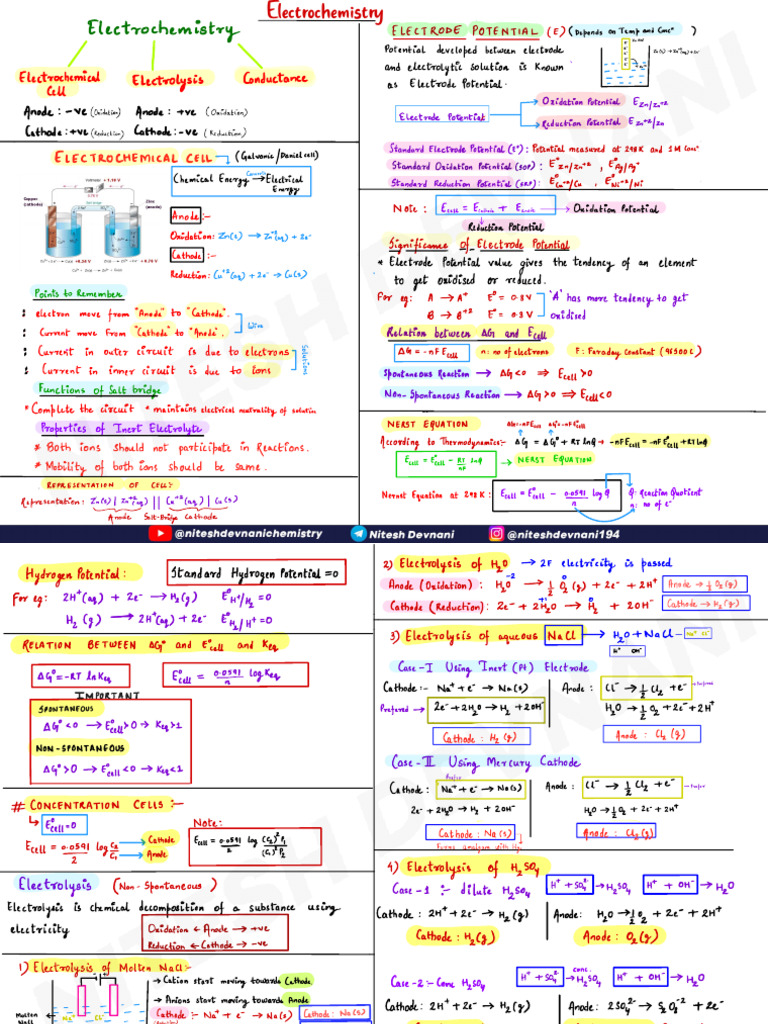 Electrochemistry
Electrochemistry
Electrochemical Cell
Electrolysis
Conductance
Anode :- -ve (Oxidation) Anode :- +ve (Oxidation)
Cathode :- +ve (Reduction) Cathode :- -ve (Reduction)
ELECTROCHEMICAL CELL → (Galvonic/Daniel cell)
Chemical Energy → Electrical Energy
Copper (cathode)
Zinc (anode)
Anode :-
Oxidation: Zn(s) → Zn+2(aq) + 2e-
Cathode :-
Reduction: Cu+2(aq) + 2e- → Cu(s)
Points to Remember
: electron move from "Anode" to "Cathode".
: Current move from "Cathode" to "Anode".
Wire
: Current in outer circuit is due to electrons
: Current in inner circuit is due to ions
Solutions
Functions of Salt bridge
* Complete the circuit * maintains electrical neutrality of solution
Properties of Inert Electrolyte
* Both ions should not participate in Reactions.
* Mobility of both ions should be same.
REPRESENTATION OF CELL:
Representation: Zn(s) | Zn+2(aq) || Cu+2(aq) | Cu(s)
Anode Salt-Bridge Cathode
ELECTRODE POTENTIAL (E) (Depends on Temp and Concn)
Potential developed between electrode
and electrolytic solution is Known
as Electrode Potential.
Electrode Potential
Oxidation Potential E Zn/Zn+2
Reduction Potential E Zn+2/Zn
Standard Electrode Potential (E°) : Potential measured at 298K and 1M Concn
Standard Oxidation Potential (SOP) : E° Zn/Zn+2 , E° Ag/Ag+
Standard Reduction Potential (SRP) : E° Cu+2/Cu , E° Ni+2/Ni
Note : Ecell = Ecathode + Eanode → Oxidation Potential
Reduction Potential
Significance of Electrode Potential
* Electrode Potential value gives the tendency of an element
to get oxidised or reduced.
For eg: A → A+ E° = 0.8V 'A' has more tendency to get
B → B+2 E° = 0.3V oxidised
Relation between ΔG and Ecell
ΔG = -nF Ecell n: no of electrons F: Faraday Constant (96500 C)
Spontaneous Reaction → ΔG<0 ⇒ Ecell>0
Non-Spontaneous Reaction → ΔG>0 ⇒ Ecell<0
NERST EQUATION
ΔG=-nFEcell ΔG°=-nF E°cell
According to Thermodynamics:- ΔG = ΔG° + RT lnQ → -nF Ecell = -nF E°cell + RT lnQ
Ecell = E°cell - RT/nF lnQ → NERST EQUATION
Nernst Equation at 298K : Ecell = E°cell - 0.0591/n log Q
Q: Reaction Quotient
n: no of e-
@niteshdevnanichemistry
Nitesh Devnani
@niteshdevnani194
Hydrogen Potential: Standard Hydrogen Potential = 0
For eg: 2H+(aq) + 2e- → H2(g) E° H+/H2 = 0
H2(g) → 2H+(aq) + 2e- E° H2/H+ = 0
RELATION BETWEEN ΔG° and E°cell and Keq
ΔG° = -RT lnKeq
E°cell = 0.0591/n log Keq
IMPORTANT
SPONTANEOUS
ΔG°<0 → E°cell>0 → Keq>1
NON-SPONTANEOUS
ΔG°>0 → E°cell<0 → Keq<1
# CONCENTRATION CELLS :-
E°cell = 0
Ecell = 0.0591/2 log C2/C1
Cathode
Anode
Note:
Ecell = 0.0591/2 log (C2)²P1/(C1)²P2
Electrolysis (Non-Spontaneous)
Electrolysis is chemical decomposition of a substance using
electricity
Oxidation ← Anode → +ve
Reduction ← Cathode → -ve
1) Electrolysis of Molten NaCl :-
Molten NaCl
Na+ Cl-
→ Cation start moving towards Cathode
→ Anions start moving towards Anode
Cathode :- Na+ + e- → Na(s)
Cathode: Na(s)
2) Electrolysis of H2O → 2F electricity is passed
Anode (Oxidation) : H2O → 1/2 O2(g) + 2e- + 2H+
Anode → 1/2 O2(g)
Cathode (Reduction) : 2e- + 2H2O → H2 + 2OH-
Cathode → H2(g)
3) Electrolysis of aqueous NaCl → H2O + NaCl
Na+ Cl-
H+ OH-
Case-I Using Inert (Pt) Electrode
Cathode :- Na+ + e- → Na(s)
Prefered → 2e- + 2H2O → H2 + 2OH-
Cathode : H2(g)
Anode : Cl- → 1/2 Cl2 + e-
H2O → 1/2 O2 + 2e- + 2H+
Anode : Cl2(g)
Case-II Using Mercury Cathode
Cathode : Na+ + e- → Na(s)
2e- + 2H2O → H2 + 2OH-
Cathode : Na(s)
Forms amalgam with Hg
Anode : Cl- → 1/2 Cl2 + e-
H2O → 1/2 O2 + 2e- + 2H+
Anode : Cl2(g)
4) Electrolysis of H2SO4
Case-1 :- dilute H2SO4
H+ + SO4-2 → H2SO4 H+ + OH- → H2O
Cathode : 2H+ + 2e- → H2(g)
Cathode : H2(g)
Anode: H2O → 1/2 O2 + 2e- + 2H+
Anode : O2(g)
Case-2 :- Conc H2SO4
H+ + SO4-2 conc. → H2SO4 H+ + OH- → H2O
Cathode: 2H+ + 2e- → H2(g)
Anode: 2SO4-2 → S2O8-2 + 2e-
NITESH DEVNANI